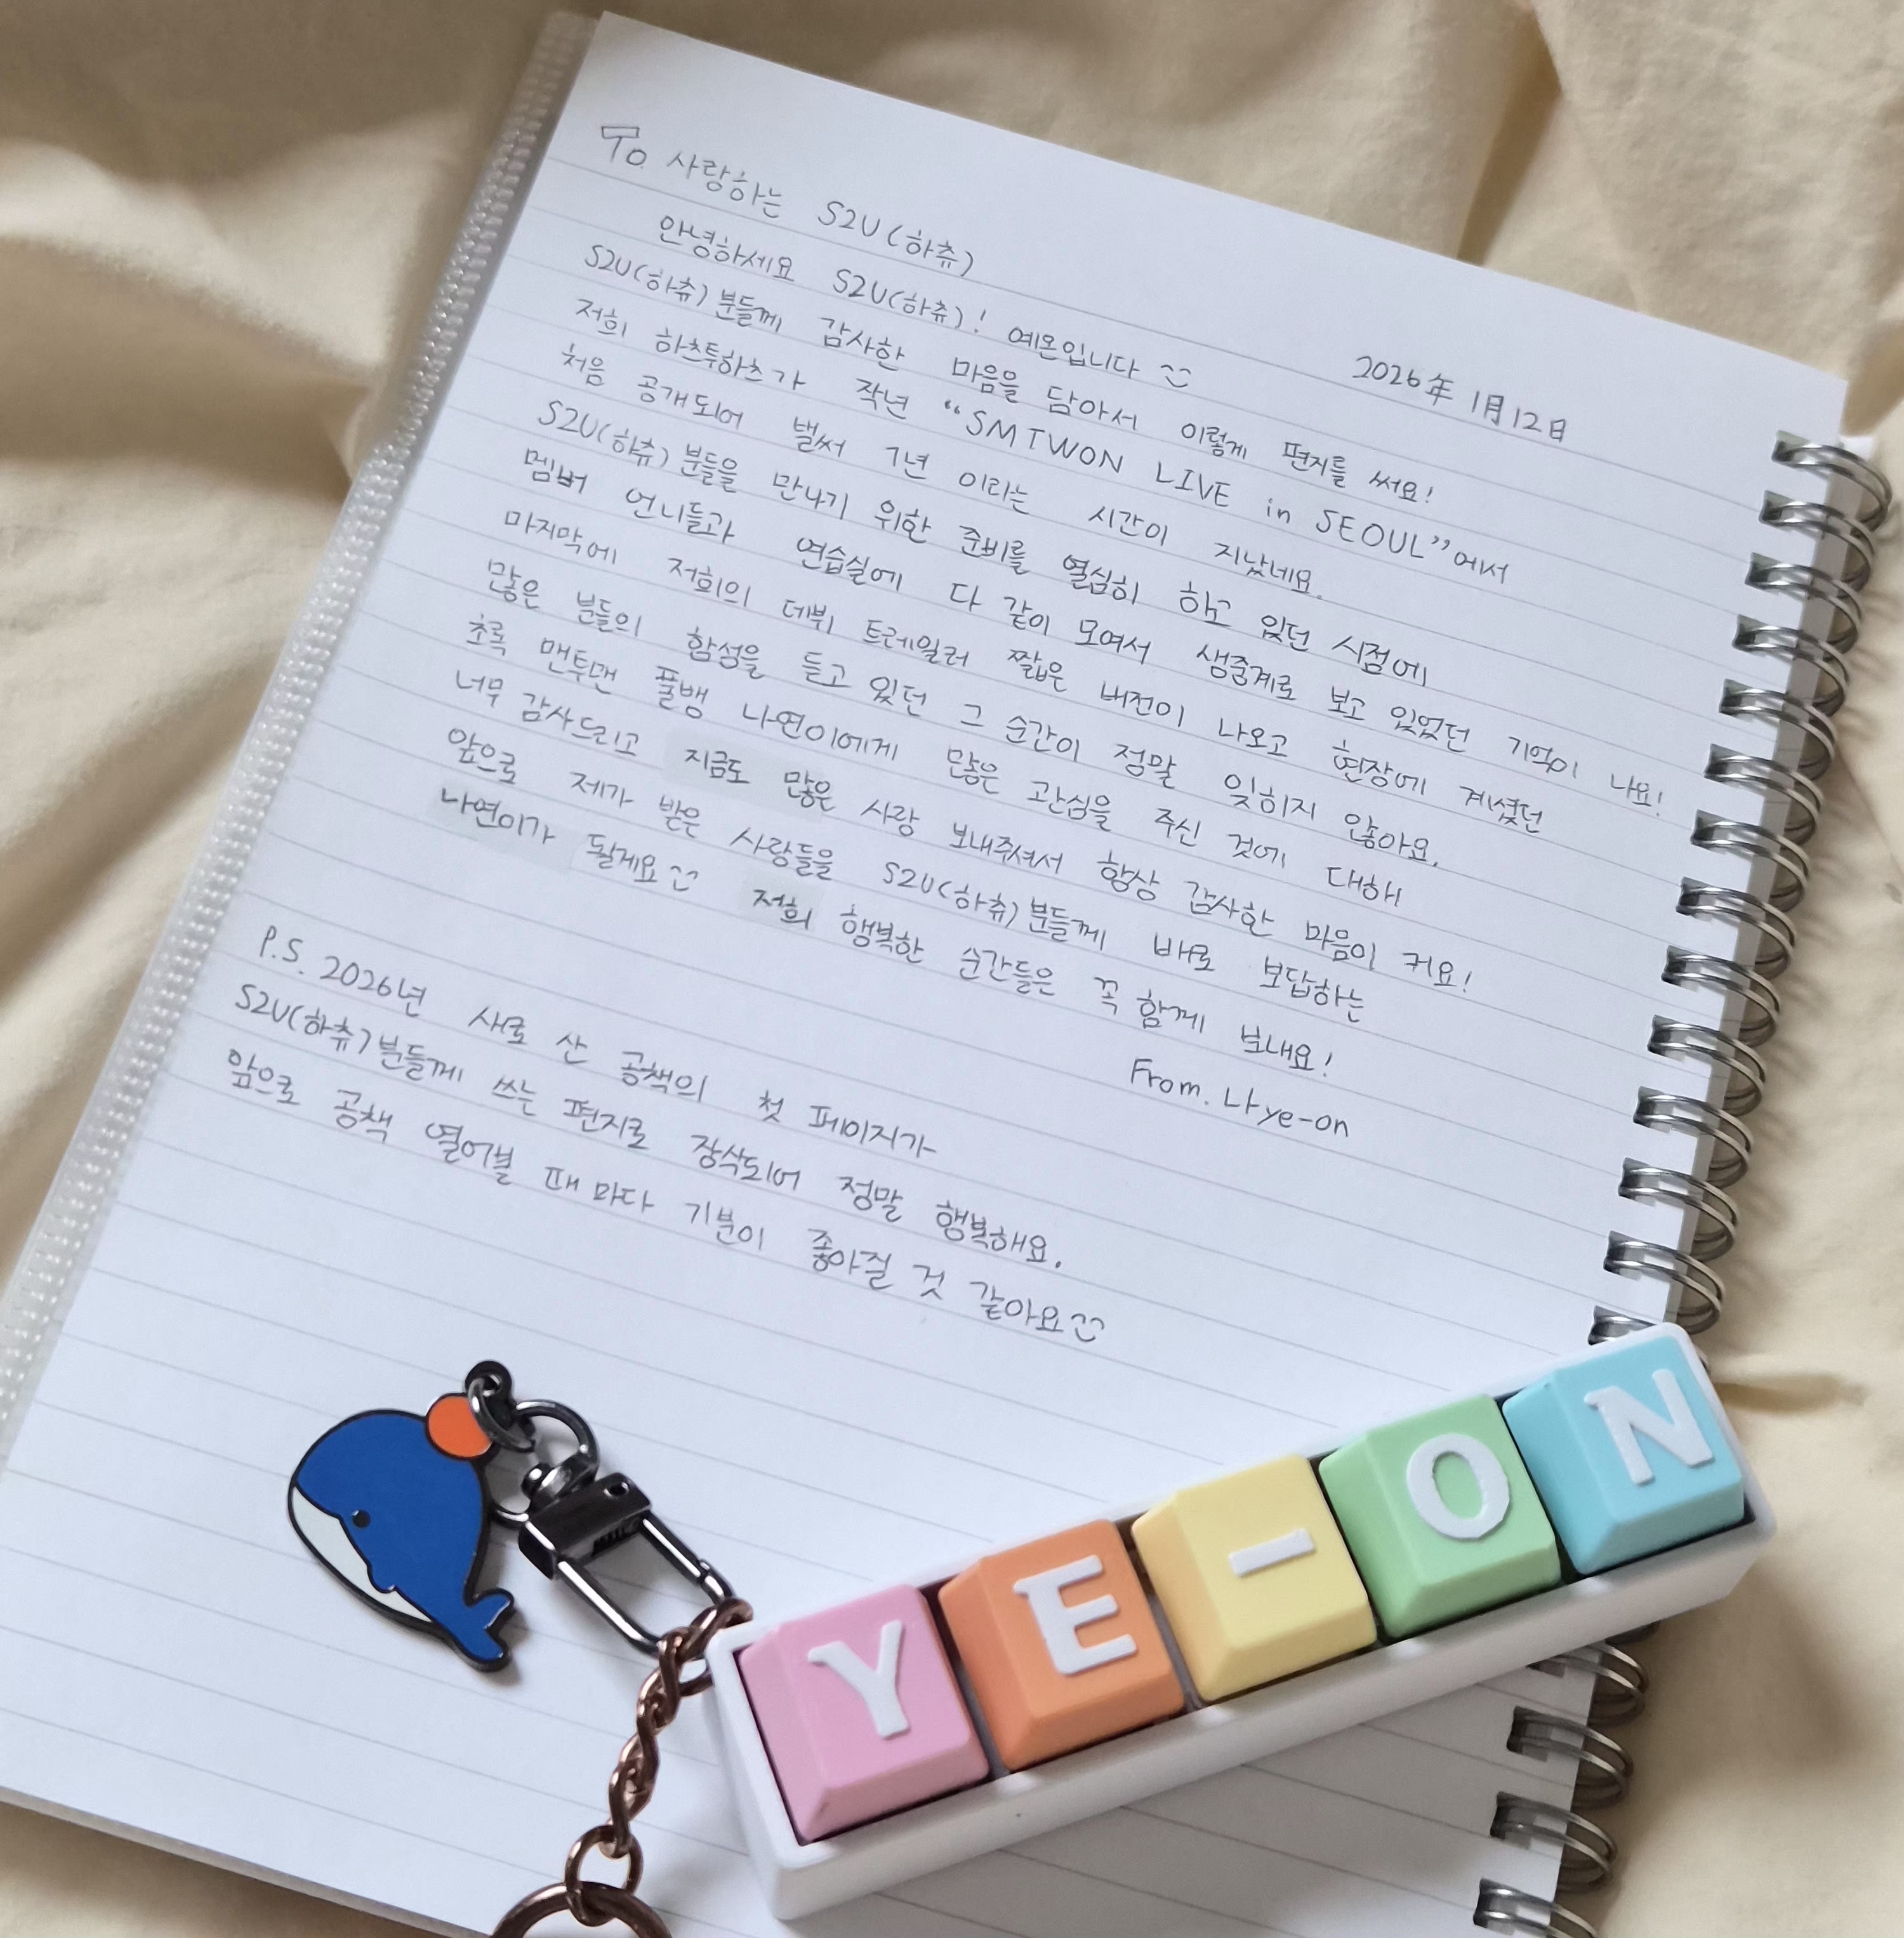 To. 사랑하는 S2U(하츄) 2026年 1月 12日
안녕하세요 S2U(하츄)! 예온입니다 :)
S2U(하츄)분들께 감사한 마음을 담아서 이렇게 편지를 써요!
저희 하츠투하츠가 작년 “SMTWON LIVE in SEOUL”에서
처음 공개되어 벌써 1년 이라는 시간이 지났네요.
S2U(하츄)분들을 만나기 위한 준비를 열심히 하고 있던 시점에
멤버 언니들과 연습실에 다 같이 모여서 생중계로 보고 있었던 기억이 나요!
마지막에 저희의 데뷔 트레일러 짧은 버전이 나오고 현장에 계셨던
많은 분들의 함성을 듣고 있던 그 순간이 정말 잊히지 않아요.
초록 맨투맨 풀뱅 나연이에게 많은 관심을 주신 것에 대해
너무 감사드리고 지금도 많은 사랑 보내주셔서 항상 감사한 마음이 커요!
앞으로 제가 받은 사랑들을 S2U(하츄)분들께 바로 보답하는
나연이가 될게요 :) 저희 행복한 순간들은 꼭 함께 보내요!
From. 나ye-on
P.S. 2026년 새로 산 공책의 첫 페이지가
S2U(하츄)분들께 쓰는 편지로 장식되어 정말 행복해요.
앞으로 공책 열어볼 때 마다 기분이 좋아질 것 같아요 :)
YE-ON